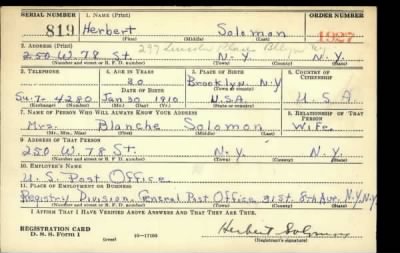 SERIAL NUMBER 1. NAME (Print) ORDER NUMBER
819 Herbert Solomon 1927
(First) (Middle) (Last)
2. ADDRESS (Print) 299 Lincoln Place Bklyn NY
250 W. 78 St. N.Y. N.Y.
(Number and street or R. F. D. number) (Town) (County) (State)
3. TELEPHONE 4. AGE IN YEARS 5. PLACE OF BIRTH 6. COUNTRY OF CITIZENSHIP
30 Brooklyn, N.Y.
DATE OF BIRTH (Town) (County)
Su. 7-4280 Jan 30 1910 U.S.A. U.S.A.
(Exchange) (Number) (Mo.) (Day) (Yr.) (State) (Country)
7. NAME OF PERSON WHO WILL ALWAYS KNOW YOUR ADDRESS 8. RELATIONSHIP OF THAT PERSON
Mrs. Blanche Solomon Wife
(Mr., Mrs., Miss) (First) (Middle) (Last)
9. ADDRESS OF THAT PERSON
250 W. 78 St. N.Y. N.Y.
(Number and street or R. F. D. number) (Town) (County) (State)
10. EMPLOYER'S NAME
U.S. Post Office
11. PLACE OF EMPLOYMENT OR BUSINESS
Registry Division, General Post Office 31 St. 8th Ave. N.Y. N.Y.
(Number and street or R. F. D. number) (Town) (County) (State)
I AFFIRM THAT I HAVE VERIFIED ABOVE ANSWERS AND THAT THEY ARE TRUE.
REGISTRATION CARD
D. S. S. Form 1 (over) 16-17105 Herbert Solomon
(Registrant's signature)